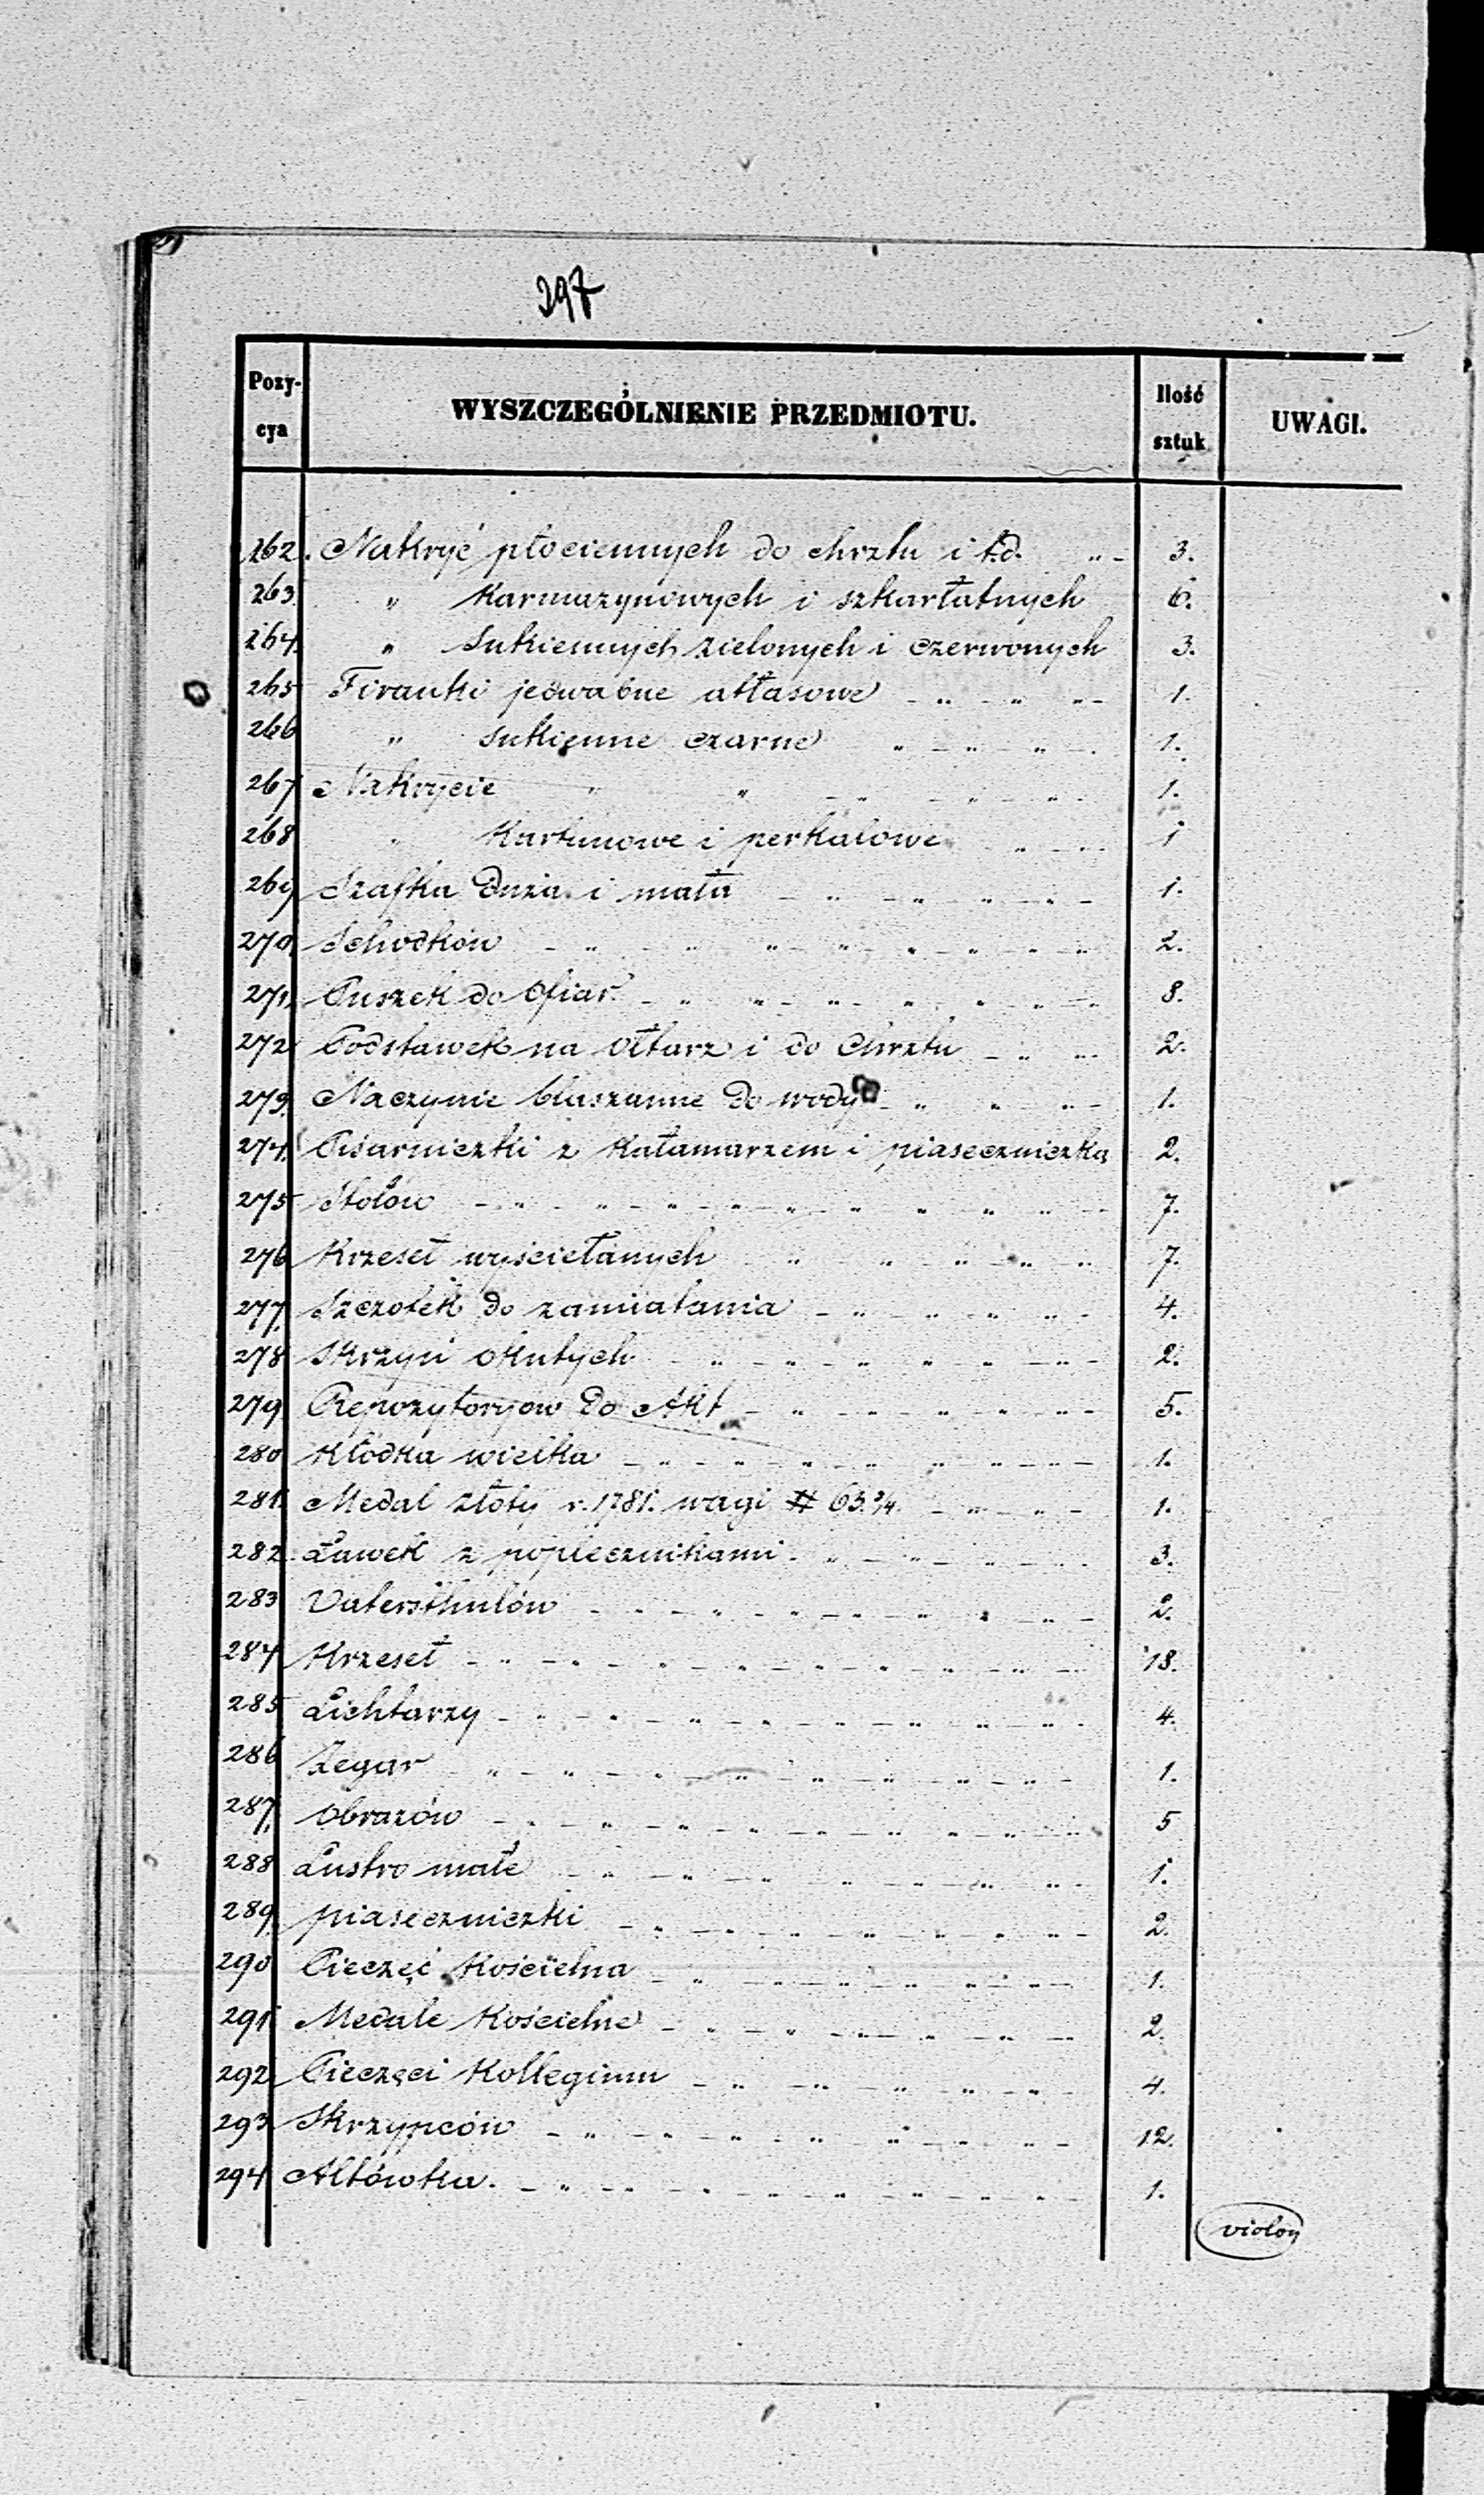 297
Pozy-
cya
WYSZCZEGÓLNIENIE PRZEDMIOTU.
Ilość
sztuk
UWAGI.
262. Nakryć płociennych do chrztu i t.d. " 3.
263. " Karmazynowych i szkarłatnych 6.
264. " Sukiennych zielonych i czerwonych 3.
265 Firanki jedwabne atłasowe " " " 1.
266 " sukienne czarne " " " 1.
267 Nakrycie " " " " " 1.
268 " Kartunowe i perkalowe " " 1
269 Szafka duża i mała " " " " 1.
270. Schodków " " " " " " " " 2.
271. Puszek do Ofiar " " " " " " " 8.
272 Podstawek na Ołtarz i do Chrztu " " 2.
273. Naczynie blaszanne do wody " " " 1.
274. Pisarniczki z Kałamarzem i piaseczniczką 2.
275 Stołów " " " " " " " " " 7.
276 Krzeseł wyściełanych " " " " " 7.
277. Szczotek do zamiatania " " " " 4.
278 Skrzyń okutych " " " " " " 2.
279 Repozytoryow do Akt " " " " " 5.
280 Kłódka wielka " " " " " " " 1.
281. Medal złoty r. 1781. wagi # 63.¾. " " 1.
282. Ławek z popiecznikami " " " " 3.
283 Vatersthulów " " " " " " " 2.
284 Krzeseł " " " " " " " " " 18.
285 Lichtarzy " " " " " " " " 4.
286 Zegar " " " " " " " " 1.
287. Obrazów " " " " " " " " 5
288 Lustro małe " " " " " " " 1.
289. piaseczniczki " " " " " " " 2.
290 Pieczęć Kościelna " " " " " " 1.
291 Medale Kościelne " " " " " 2.
292 Pieczęci Kollegium " " " " " 4.
293 Skrzypców " " " " " " " 12.
294 Altówka. " " " " " " " " 1.
violon